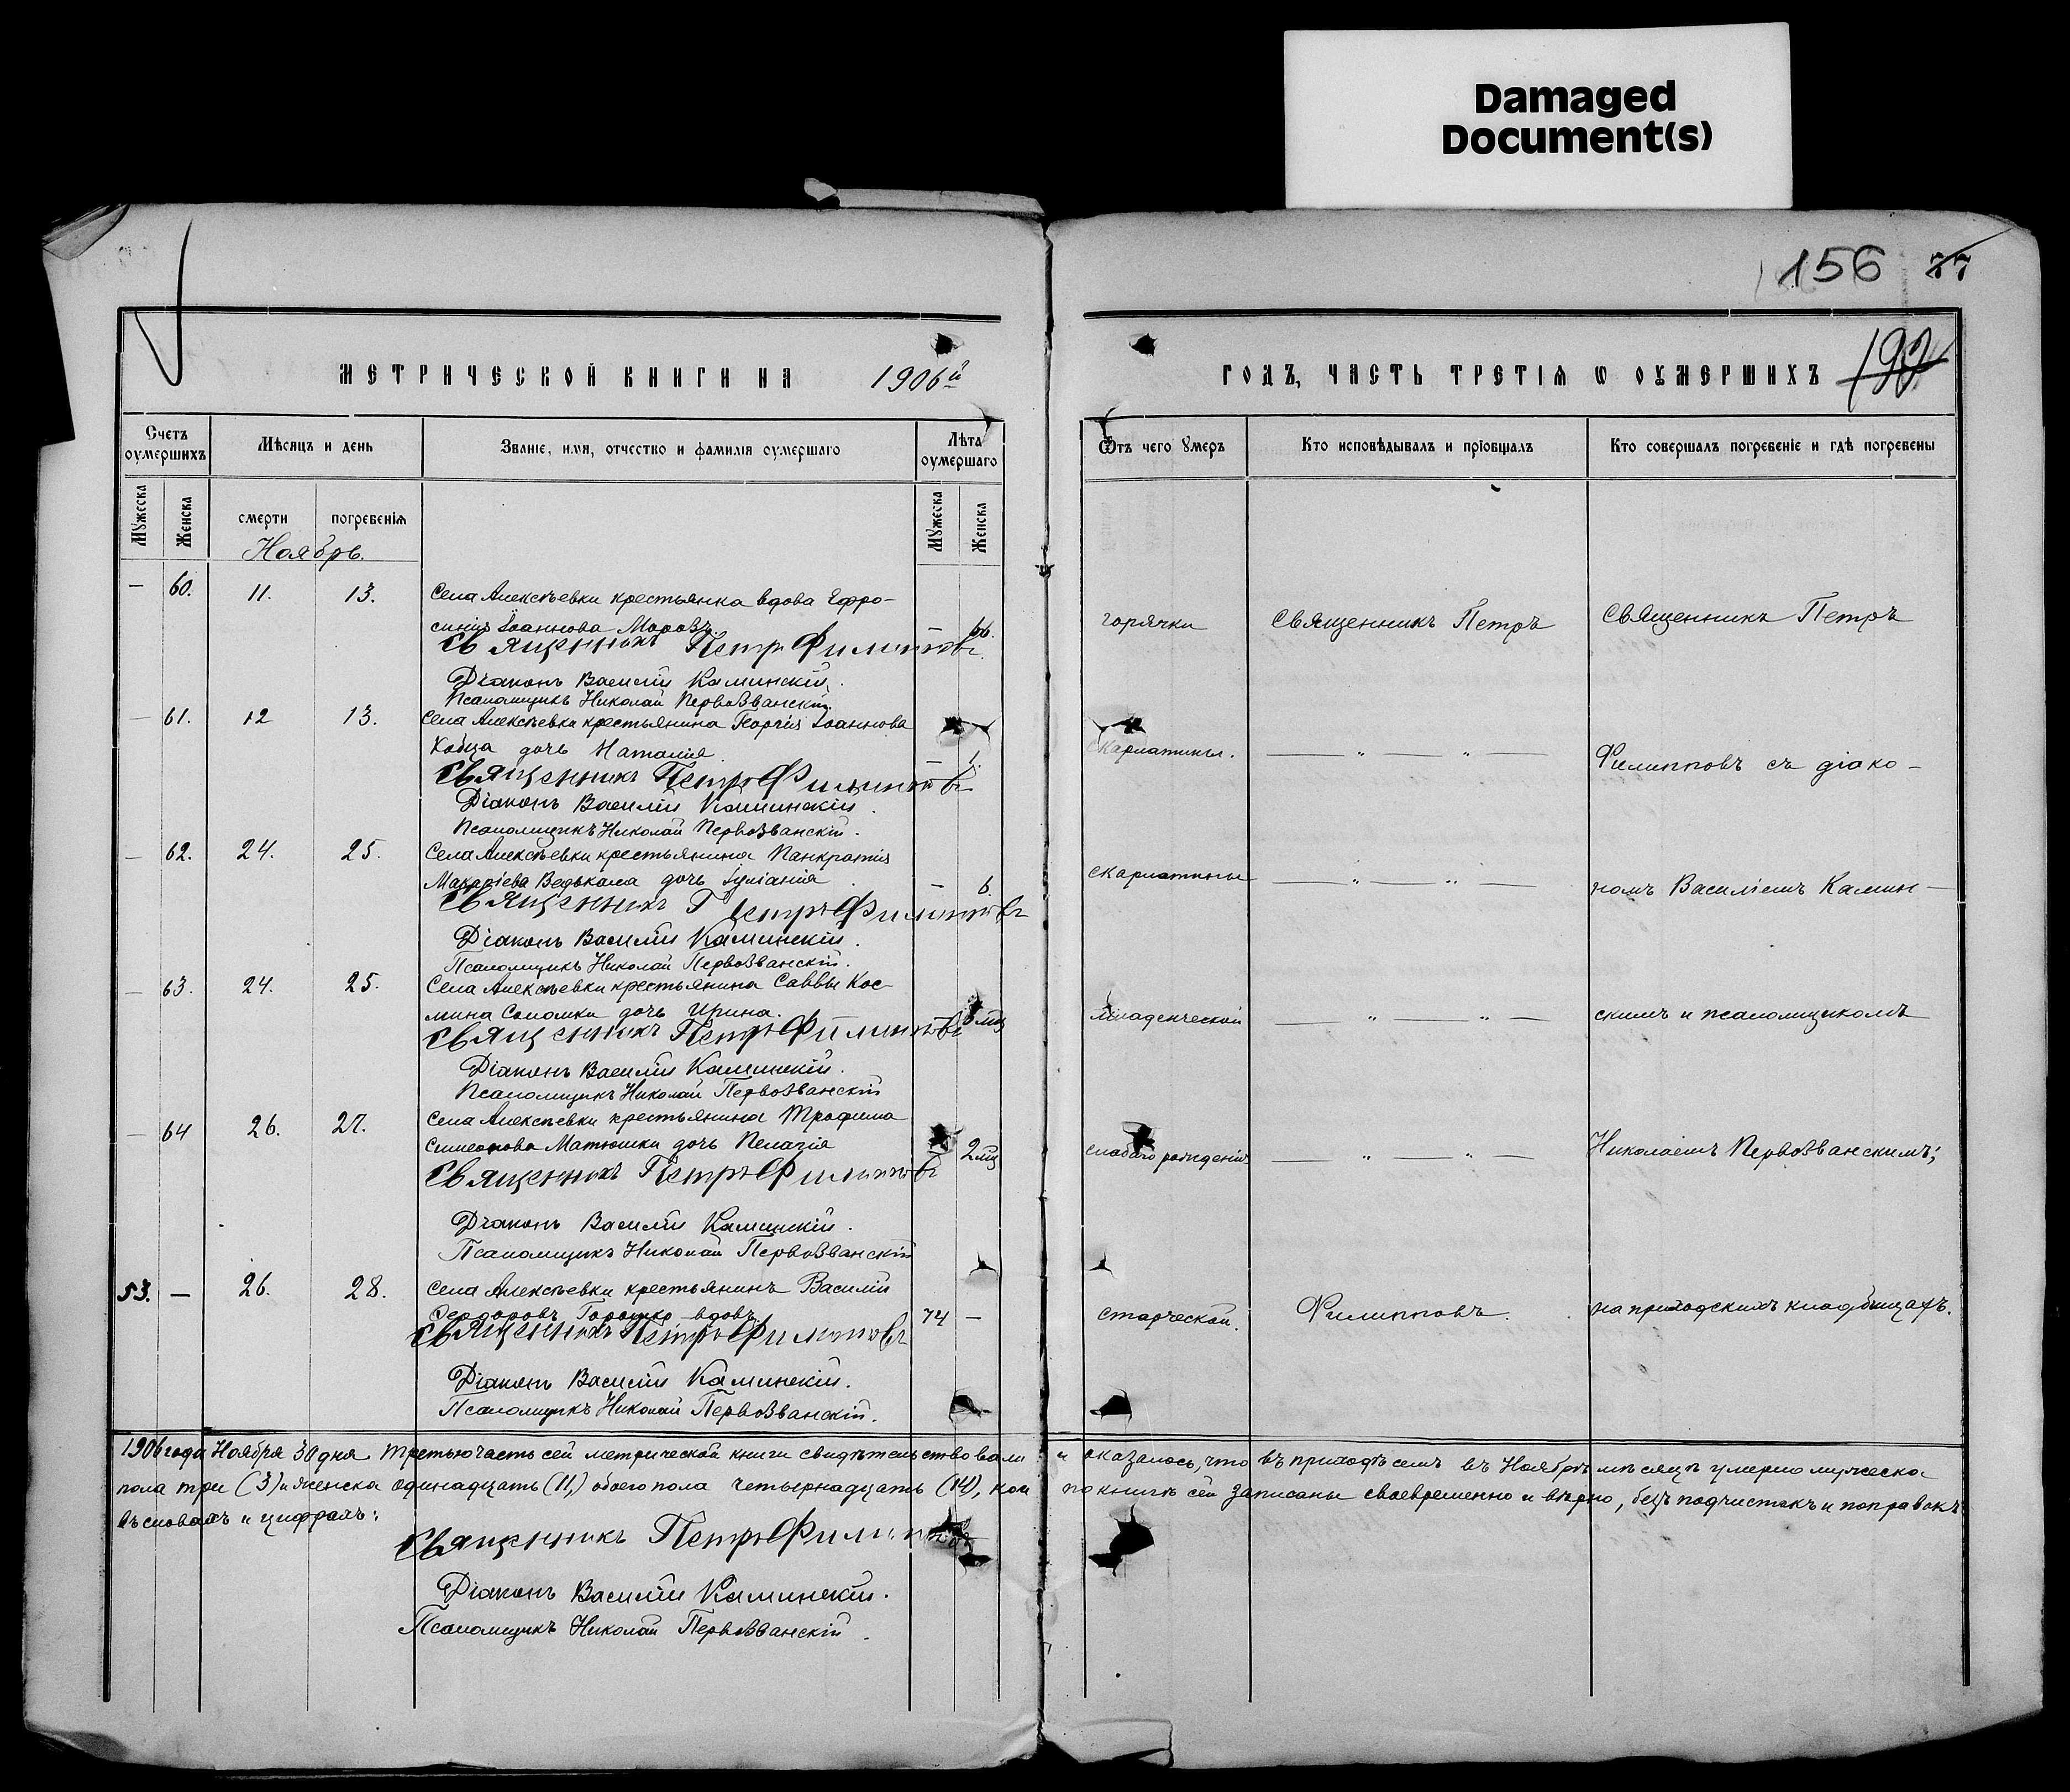 Damaged
Document(s)
156 77
МЕТРИЧЕСКОЙ КНИГИ НА 1906й
ГОДЪ, ЧАСТЬ ТРЕТІЯ Ѡ ОУМЕРШИХЪ 192
Счетъ оумершихъ
Мѣсяцъ и день
Званіе, имя, отчество и фамилія оумершаго
Лѣта оумершаго
Ѿтъ чего умеръ
Кто исповѣдывалъ и пріобщалъ
Кто совершалъ погребеніе и гдѣ погребены
Мужеска
Женска
смерти
погребенія
Мужеска
Женска
Ноябрь.
— 60. 11. 13. Села Алексѣевки крестьянка вдова Ефро-
синія Іоаннова Морозъ. — 66. горячки Священникъ Петръ Священникъ Петръ
Священникъ Петръ Филипповъ.
Діаконъ Василій Каминскій.
Псаломщикъ Николай Первозванскій.
— 61. 12 13. Села Алексѣевки крестьянина Георгія Іоаннова
Кобца дочь Наталія. — 1. скарлатины. — „ — „ — Филипповъ съ діако-
Священникъ Петръ Филипповъ
Діаконъ Василій Каминскій.
Псаломщикъ Николай Первозванскій.
— 62. 24. 25. Села Алексѣевки крестьянина Панкратія
Макаріева Ведькала дочь Іуліанія. — 6. скарлатины — „ — „ — номъ Василіемъ Камин-
Священникъ Петръ Филипповъ
Діаконъ Василій Каминскій.
Псаломщикъ Николай Первозванскій.
— 63. 24. 25. Села Алексѣевки крестьянина Саввы Кос-
мина Соломки дочь Ирина. — мц младенческой — „ — „ — скимъ и псаломщикомъ
Священникъ Петръ Филипповъ
Діаконъ Василій Каминскій.
Псаломщикъ Николай Первозванскій
— 64 26. 27. Села Алексѣевки крестьянина Трофима
Симеонова Матюшки дочь Пелагія — 2 мц слабаго рожденія — „ — „ — Николаемъ Первозванскимъ;
Священникъ Петръ Филипповъ
Діаконъ Василій Каминскій.
Псаломщикъ Николай Первозванскій
53. — 26. 28. Села Алексѣевки крестьянинъ Василій
Ѳеодоровъ Горошко вдовъ. 74 — старческой. Филипповъ. на приходскихъ кладбищахъ.
Священникъ Петръ Филипповъ
Діаконъ Василій Каминскій.
Псаломщикъ Николай Первозванскій.
1906 года Ноября 30 дня Третью часть сей метрической книги свидѣтельствовали и оказалось, что въ приходѣ семъ въ Ноябрѣ мѣсяцѣ умерло мужеска
пола три (3) и женска одинадцать (11,) обоего пола четырнадцать (14), кои по книгѣ сей записаны своевременно и вѣрно, безъ подчистокъ и поправокъ
въ словахъ и цифрахъ:
Священникъ Петръ Филипповъ
Діаконъ Василій Каминскій.
Псаломщикъ Николай Первозванскій.